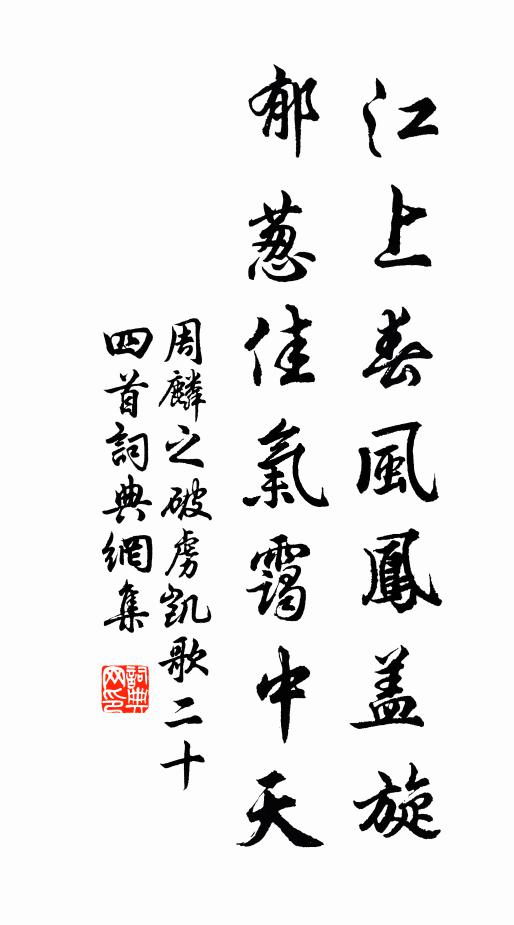 江上春風鳳盖旋
郁葱佳氣靄中天
周麟之破虜凱歌二十
四首詞典網集
詞典
网印